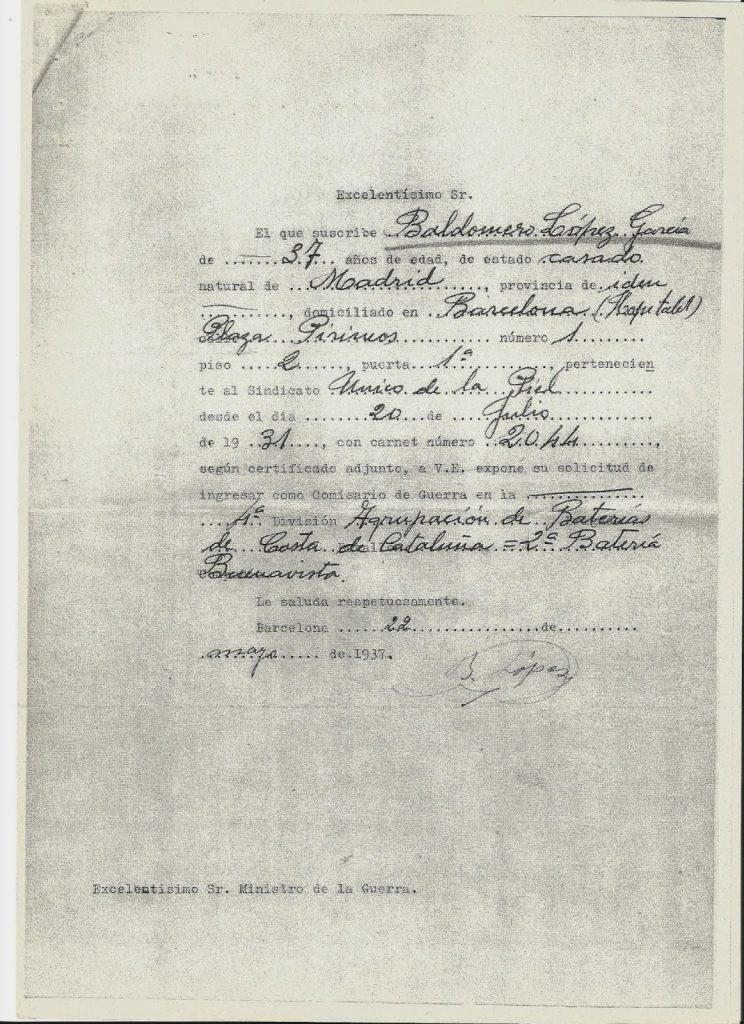 Excelentísimo Sr.
El que suscribe Baldomero López García
de ....... 37 ... años de edad, de estado casado
natural de .. Madrid ......, provincia de iden
.........., domiciliado en .. Barcelona (Hospitalet)
Plaza Pirineos número 1 ........
piso .... 2 ......, puerta 1ª .........., pertenecien
te al Sindicato Unico de la Piel
desde el dia ........ 20 .. de .... Julio
de 19 .. 31 ...., con carnet número .. 2044 ..........,
según certificado adjunto, a V.E. expone su solicitud de
ingresar como Comisario de Guerra en la
.... 4ª. División Agrupación de Baterías
de Costa de Cataluña = 2ª Batería
Buenavista.
Le saluda respetuosamente.
Barcelona ..... 22 ................. de ..........
mayo ..... de 1937.
B. López
Excelentisimo Sr. Ministro de la Guerra.